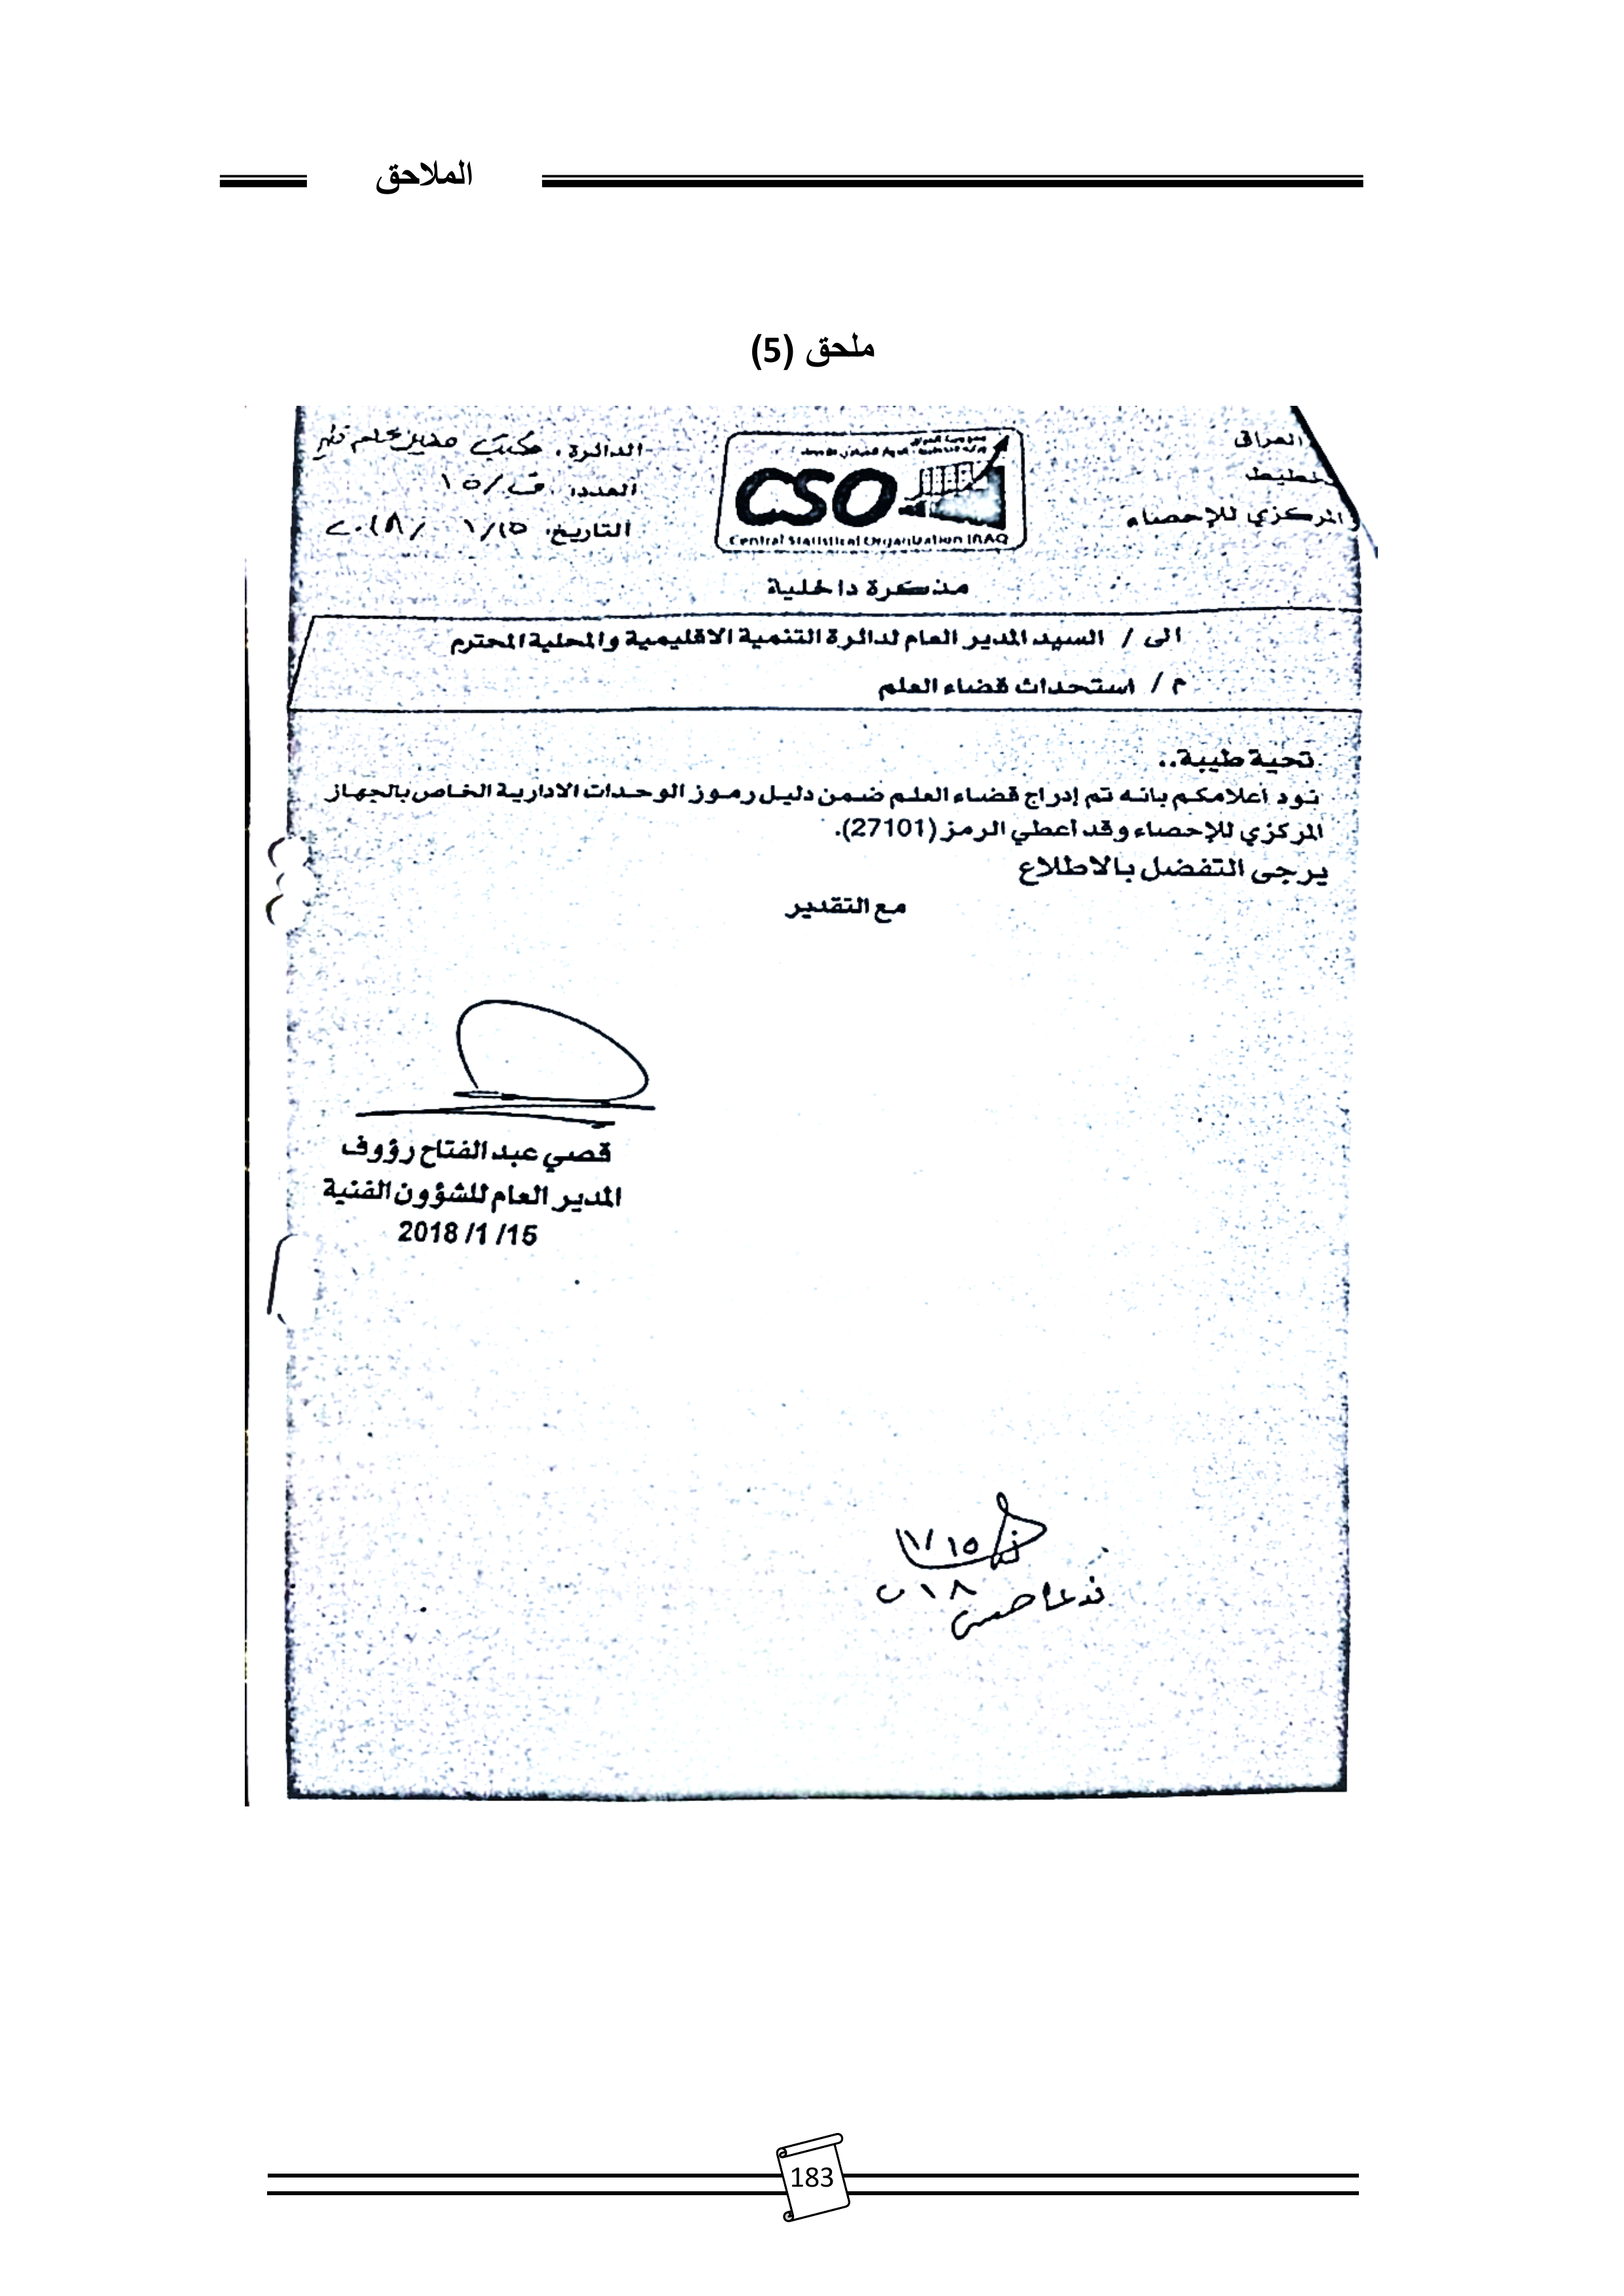 الملاحق
ملحق (5)
العراق
المركزي للإحصاء
CSO
Central Statistical Organization IRAQ
الدائرة: مكتب مدير عام
العدد: ١٥/
التاريخ: ١٥/١ /٢٠١٨
مذكرة داخلية
الى / السيد المدير العام لدائرة التنمية الاقليمية والمحلية المحترم
م / استحداث قضاء العلم
تحية طيبة..
نود أعلامكم بانه تم إدراج قضاء العلم ضمن دليل رموز الوحدات الادارية الخاص بالجهاز
المركزي للإحصاء وقد أعطي الرمز (27101).
يرجى التفضل بالاطلاع
مع التقدير
قصي عبد الفتاح رؤوف
المدير العام للشؤون الفنية
2018 /1 /15
١٥ /١
183